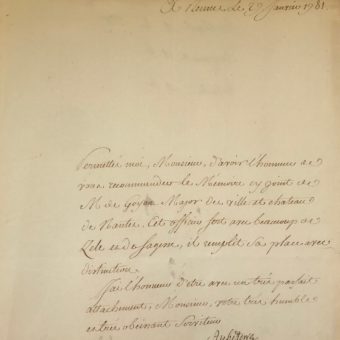 A Rennes Le 27 Janvier 1781
Permettés moi, Monsieur, d'avoir l'honneur de
vous recommander le Mémoire cy joint de
M de Goyon Major des ville et chateau
de Nantes. Cet officier sert avec beaucoup de
Zele et de sagesse, il remplit sa place avec
distinction.
J'ai l'honneur d'etre avec un très parfait
attachement, Monsieur, votre très humble
et très obéissant Serviteur